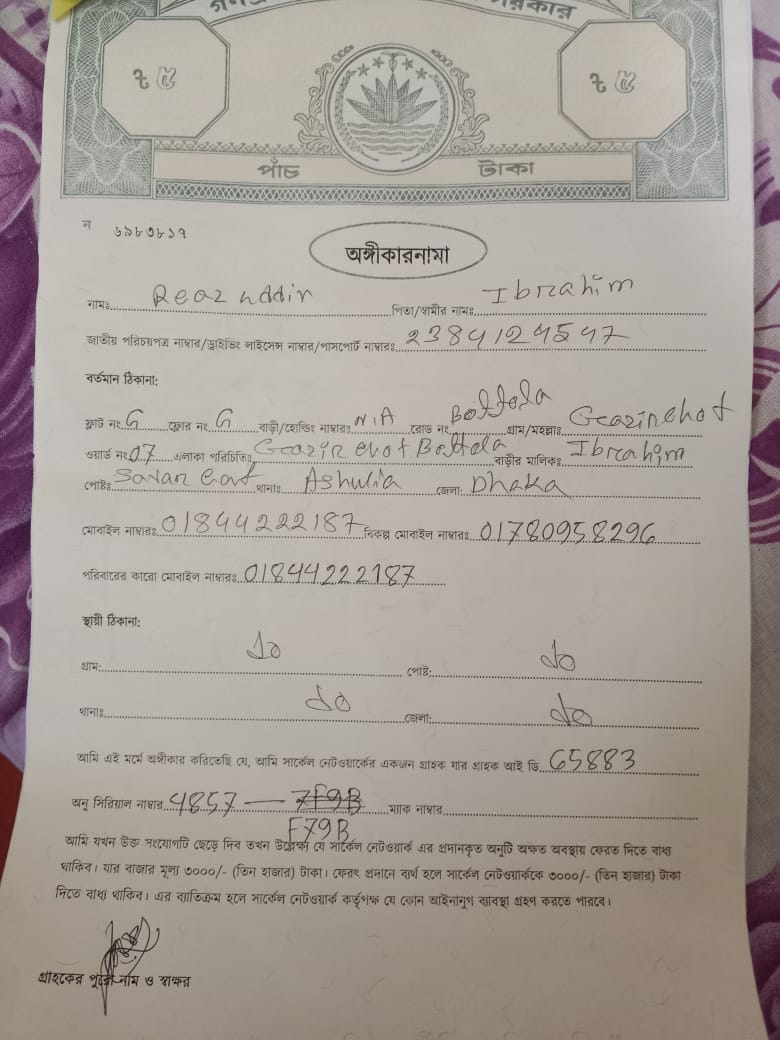 ৳ ৫ ৳ ৫
পাঁচ টাকা
ন ৬৯৮৩৮১৭
অঙ্গীকারনামা
নামঃ Reaz uddin পিতা/স্বামীর নামঃ Ibrahim
জাতীয় পরিচয়পত্র নাম্বার/ড্রাইভিং লাইসেন্স নাম্বার/পাসপোর্ট নাম্বারঃ 2384124547
বর্তমান ঠিকানা:
ফ্লাট নং G ফ্লোর নং G বাড়ী/হোল্ডিং নাম্বারঃ N/A রোড নং Bottola গ্রাম/মহল্লাঃ Geazirchot
ওয়ার্ড নং 07 এলাকা পরিচিতিঃ Geazirchot Bottola বাড়ীর মালিকঃ Ibrahim
পোষ্টঃ Savar Cant থানাঃ Ashulia জেলা: Dhaka
মোবাইল নাম্বারঃ 01844222187 বিকল্প মোবাইল নাম্বারঃ 01780958296
পরিবারের কারো মোবাইল নাম্বারঃ 01844222187
স্থায়ী ঠিকানা:
গ্রাম: do পোষ্ট: do
থানাঃ do জেলা: do
আমি এই মর্মে অঙ্গীকার করিতেছি যে, আমি সার্কেল নেটওয়ার্কের একজন গ্রাহক যার গ্রাহক আই ডি 65883
অনু সিরিয়াল নাম্বার 4857 — 7F9B ম্যাক নাম্বার
F79B
আমি যখন উক্ত সংযোগটি ছেড়ে দিব তখন উল্লেক্ষ্য যে সার্কেল নেটওয়ার্ক এর প্রদানকৃত অনুটি অক্ষত অবস্থায় ফেরত দিতে বাধ্য
থাকিব। যার বাজার মূল্য ৩০০০/- (তিন হাজার) টাকা। ফেরৎ প্রদানে ব্যর্থ হলে সার্কেল নেটওয়ার্ককে ৩০০০/- (তিন হাজার) টাকা
দিতে বাধ্য থাকিব। এর ব্যাতিক্রম হলে সার্কেল নেটওয়ার্ক কর্তৃপক্ষ যে কোন আইনানুগ ব্যাবস্থা গ্রহণ করতে পারবে।
গ্রাহকের পুরো নাম ও স্বাক্ষর